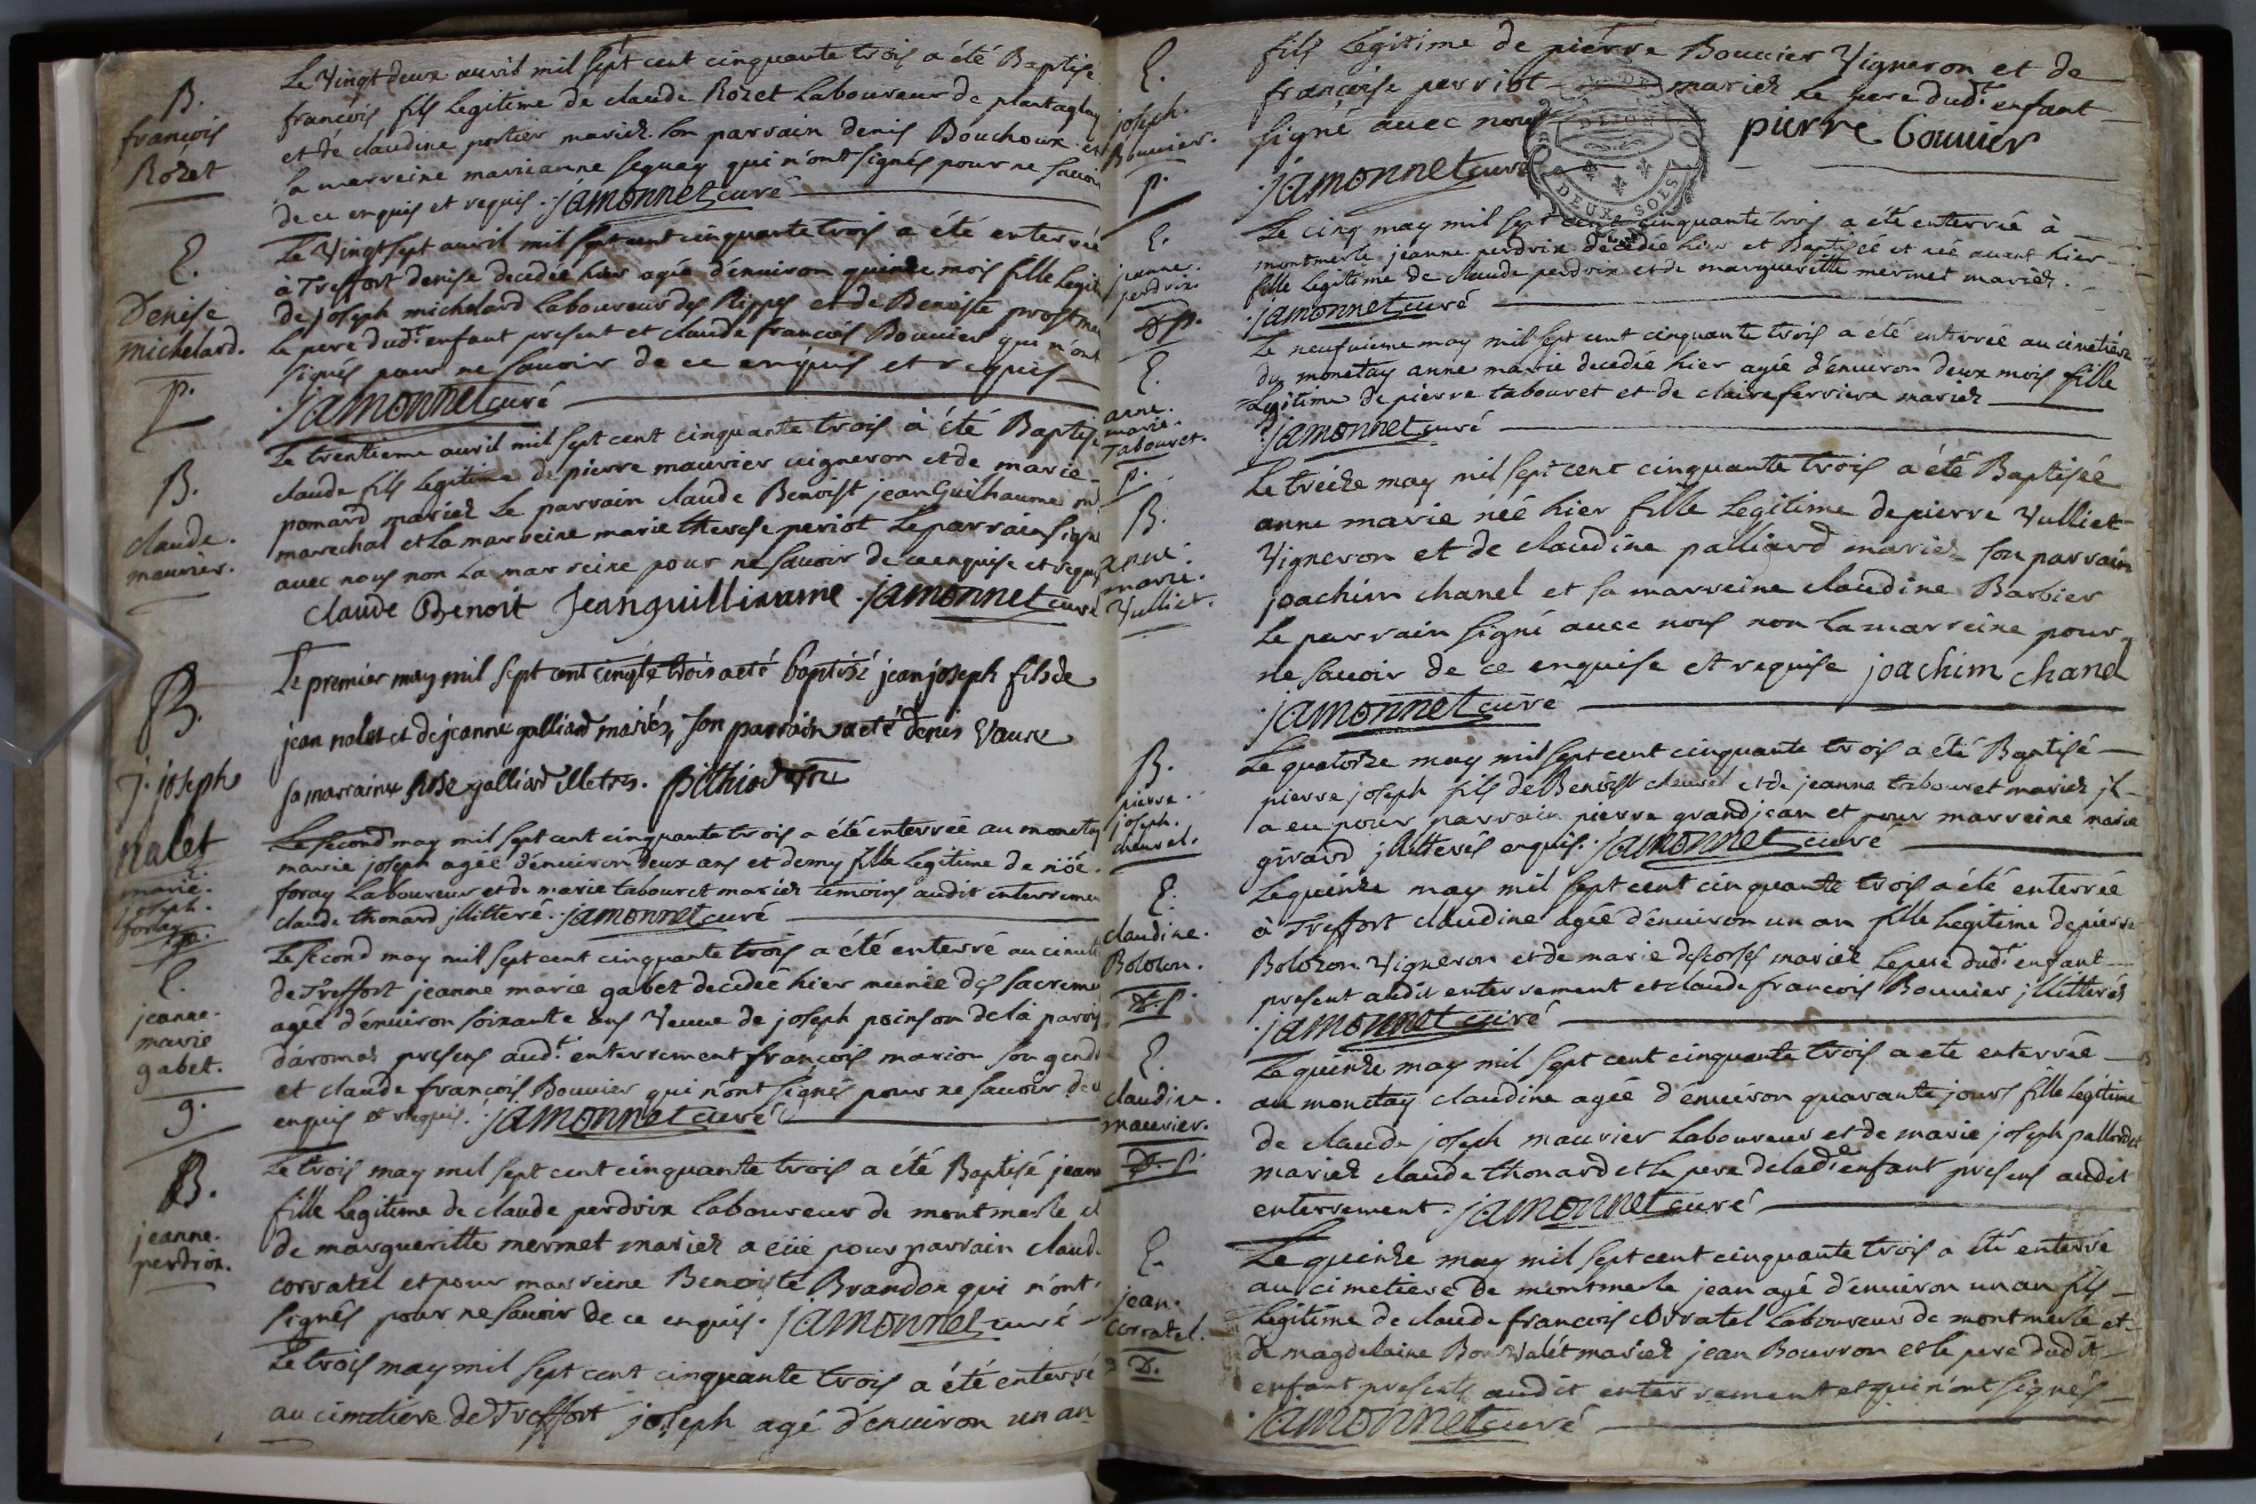 B.
françois
Rozet
Le Vingt deux auril mil sept cent cinquante trois a été Baptisé
françois fils Legitime de claude Rozet Laboureur de plantaglay
et de claudine portier mariez son parrain denis Bouchoux et
la marreine marianne seguay qui n'ont signés pour ne sauoir
de ce enquis et requis. jamonnet curé
E.
Denise
michelard.
p.
Le Vingt sept auril mil sept cent cinquante trois a été enterrée
à Treffort denise decedée hier agée d'enuiron quinze mois fille Legit
de joseph michelard Laboureur des Rippes et de Benoiste prost
Le pere dud.t enfant present et claude françois Bouuier qui n'ont
signés pour ne sauoir de ce enquis et requis
jamonnet curé
B.
claude.
maurier.
Le trentieme auril mil sept cent cinquante trois à été Baptisé
claude fils Legitime de pierre maurier uigneron et de marie
pomard mariez Le parrain claude Benoist jean Guilhaume
marechal et La marreine marie therese periot Le parrain signé
auec nous non La marreine pour ne sauoir de ce enquise et requis
claude Benoit Jeanguilliaume jamonnet curé
B.
j. joseph
nalet
Le premier may mil sept cent cinqte trois a eté baptisé jean joseph fils de
jean nalet et de jeanne galliard mariés, son parrain a eté denis Vaure
sa marraine rose galliard illetrés. pithiod
marie.
joseph.
foray
p.
Le second may mil sept cent cinquante trois a été enterrée au monetay
marie joseph agée d'enuiron deux ans et demy fille Legitime de nöé
foray Laboureur et de marie tabouret mariez temoins audit enterremen
claude thomard jllitteré. jamonnet curé
E.
jeanne.
marie
gabet.
g.
Le second may mil sept cent cinquante trois a été enterré au
de Treffort jeanne marie gabet decedée hier munie des sacreme
agée d'enuiron soixante ans Veuue de joseph poinson de la parois
d'aromas presens aud.t enterrement françois marion son gend
et claude françois Bouuier qui n'ont signés pour ne sauoir de
enquis et requis. jamonnet curé
B.
jeanne.
perdrix.
Le trois may mil sept cent cinquante trois a été Baptisé jeann
fille Legitime de claude perdrix Laboureur de montmerle et
de margueritte mermet mariez a eüe pour parrain claud
corratel et pour marreine Benoiste Brandon qui n'ont
signés pour ne sauoir de ce enquis. jamonnet curé
Le trois may mil sept cent cinquante trois a été enterré
au cimetiere de Treffort joseph agé d'enuiron un an
E.
joseph.
Bouuier.
p.
fils Legitime de pierre Bouuier Vigneron et de
françoise perriot mariez Le pere dud.t enfant
signé auec nous pierre bouuier
jamonnet curé
DIJON
DEUX SOLS
E.
jeanne.
perdrix.
Le cinq may mil sept cent cinquante trois a été enterrée à
montmerle jeanne perdrix decedée hier et Baptisée et née auant hier
fille Legitime de claude perdrix et de margueritte mermet mariez.
jamonnet curé
E.
anne.
marie.
Tabouret.
p.
Le neufuieme may mil sept cent cinquante trois a été enterrée au cimetiere
du monetay anne marie decedée hier agée d'enuiron deux mois fille
Legitime de pierre tabouret et de claire ferriere mariez
jamonnet curé
B.
anne.
marie.
Vulliet.
Le treize may mil sept cent cinquante trois a été Baptisée
anne marie née hier fille Legitime de pierre Vulliet
Vigneron et de claudine palliard mariez son parrain
joachim chanel et sa marreine claudine Barbier
Le parrain signé auec nous non La marreine pour
ne sauoir de ce enquise et requise joachim chanel
jamonnet curé
B.
pierre.
joseph.
cheurel.
Le quatorze may mil sept cent cinquante trois a été Baptisé
pierre joseph fils de Benoist cheurel et de jeanne tabouret mariez jl
a eu pour parrain pierre grandjean et pour marreine marie
girard jllitterés enquis. jamonnet curé
E.
claudine.
Bolozon.
Le quinze may mil sept cent cinquante trois a été enterrée
à Treffort claudine agée d'enuiron un an fille Legitime de pierre
Bolozon Vigneron et de marie descorses mariez Le pere dud.t enfant
present audit enterrement et claude françois Bouuier jllitterés
jamonnet curé
E.
claudine.
maurier.
Le quinze may mil sept cent cinquante trois a ete enterrée
au monetay claudine agée d'enuiron quarante jours fille Legitime
de claude joseph maurier Laboureur et de marie joseph
mariez claude thomard et le pere de lad.e enfant presens audit
enterrement. jamonnet curé
E.
jean.
corratel.
D.
Le quinze may mil sept cent cinquante trois a été enterré
au cimetiere de montmerle jean agé d'enuiron un an fils
Legitime de claude françois corratel Laboureur de montmerle et
de magdelaine Bonvalét mariez jean Bourron et le pere dudit
enfant presents audit enterrement et qui n'ont signés
jamonnet curé